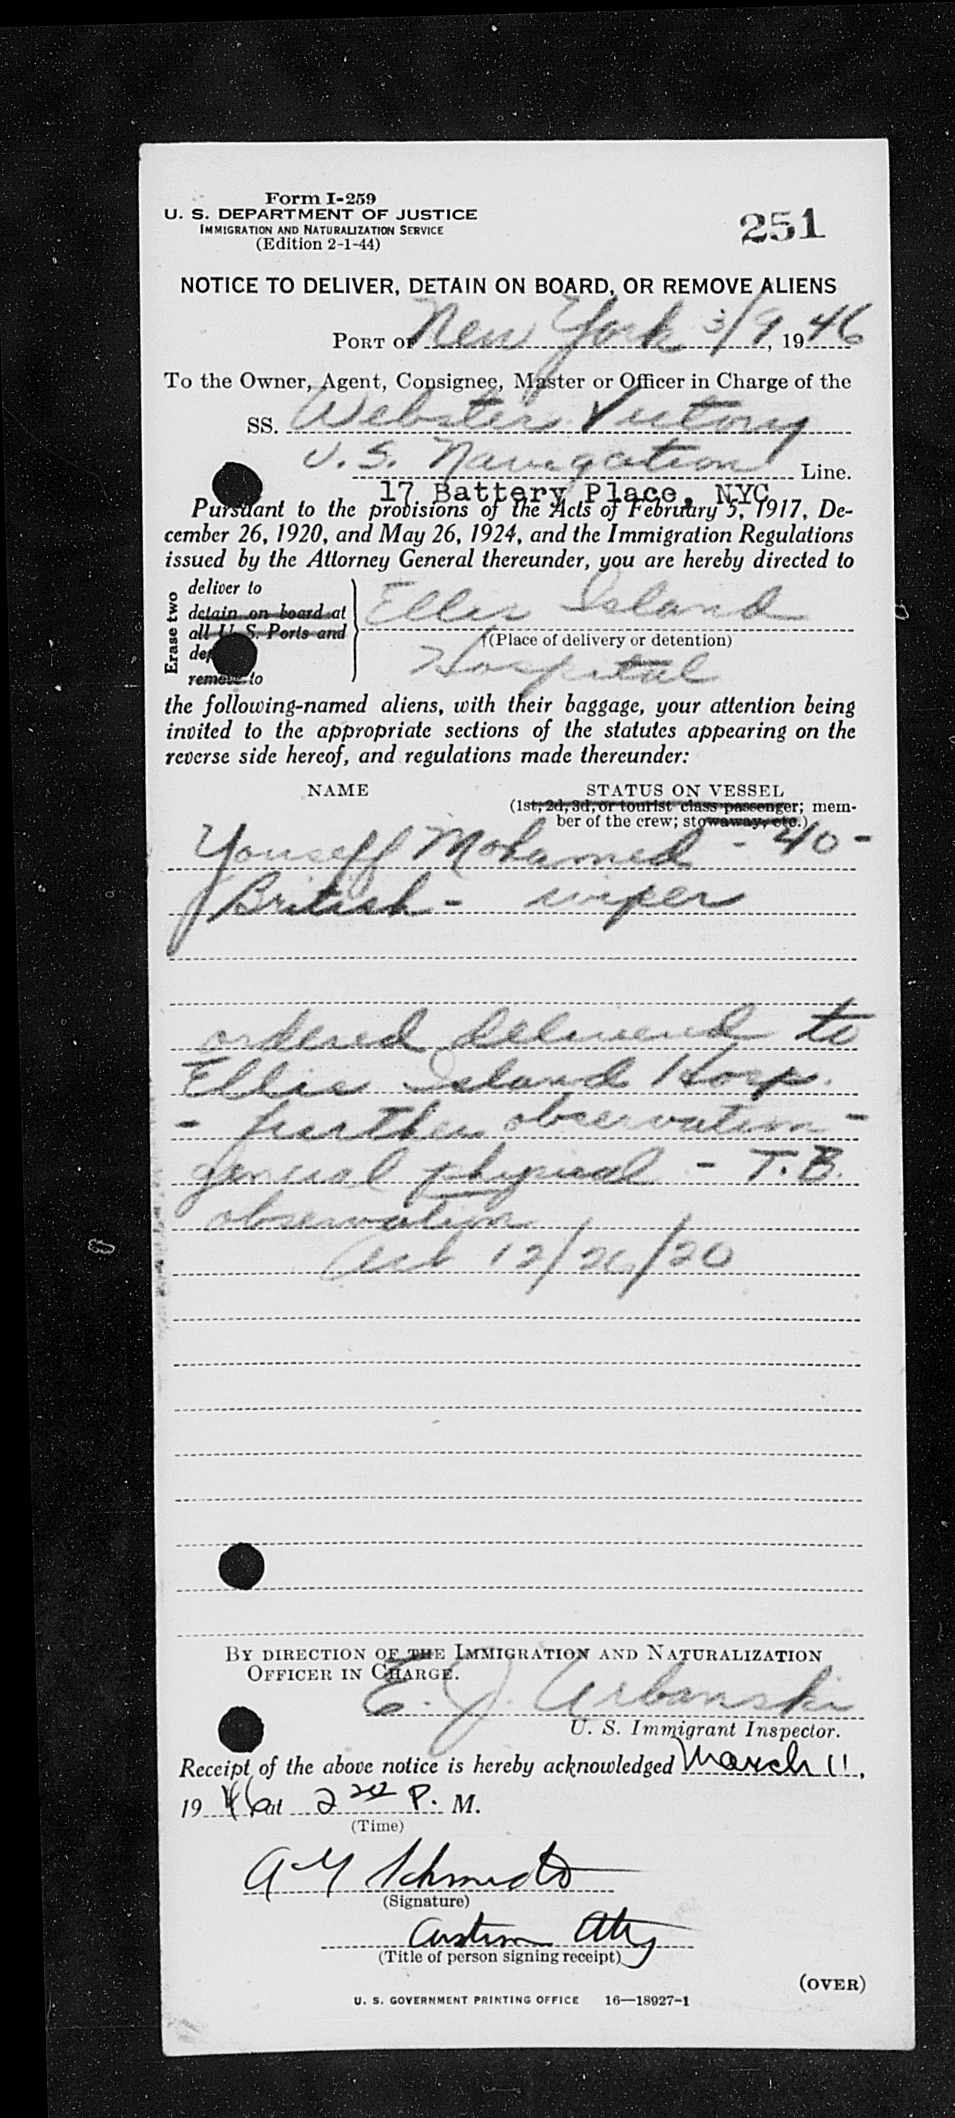 Form I-259
U. S. DEPARTMENT OF JUSTICE
IMMIGRATION AND NATURALIZATION SERVICE
(Edition 2-1-44)
251
NOTICE TO DELIVER, DETAIN ON BOARD, OR REMOVE ALIENS
PORT OF New York 3/9, 1946
To the Owner, Agent, Consignee, Master or Officer in Charge of the
SS. Webster Victory
U.S. Navigation Line.
17 Battery Place, NYC
Pursuant to the provisions of the Acts of February 5, 1917, De-
cember 26, 1920, and May 26, 1924, and the Immigration Regulations
issued by the Attorney General thereunder, you are hereby directed to
Erase two
deliver to
detain on board at
all U. S. Ports and
remove to
Ellis Island
(Place of delivery or detention)
Hospital
the following-named aliens, with their baggage, your attention being
invited to the appropriate sections of the statutes appearing on the
reverse side hereof, and regulations made thereunder:
NAME STATUS ON VESSEL
(1st, 2d, 3d, or tourist class passenger; mem-
ber of the crew; stowaway, etc.)
Youseff Mohamed - 40 -
British - wiper
ordered delivered to
Ellis Island Hosp.
- further observation -
general physical - T.B.
observation
Act 12/26/20
BY DIRECTION OF THE IMMIGRATION AND NATURALIZATION
OFFICER IN CHARGE.
E. J. Urbanski
U. S. Immigrant Inspector.
Receipt of the above notice is hereby acknowledged March 11,
1946 at 2 P. M.
(Time)
Schmidt
(Signature)
Custom Atty
(Title of person signing receipt)
(OVER)
U. S. GOVERNMENT PRINTING OFFICE 16—18927-1